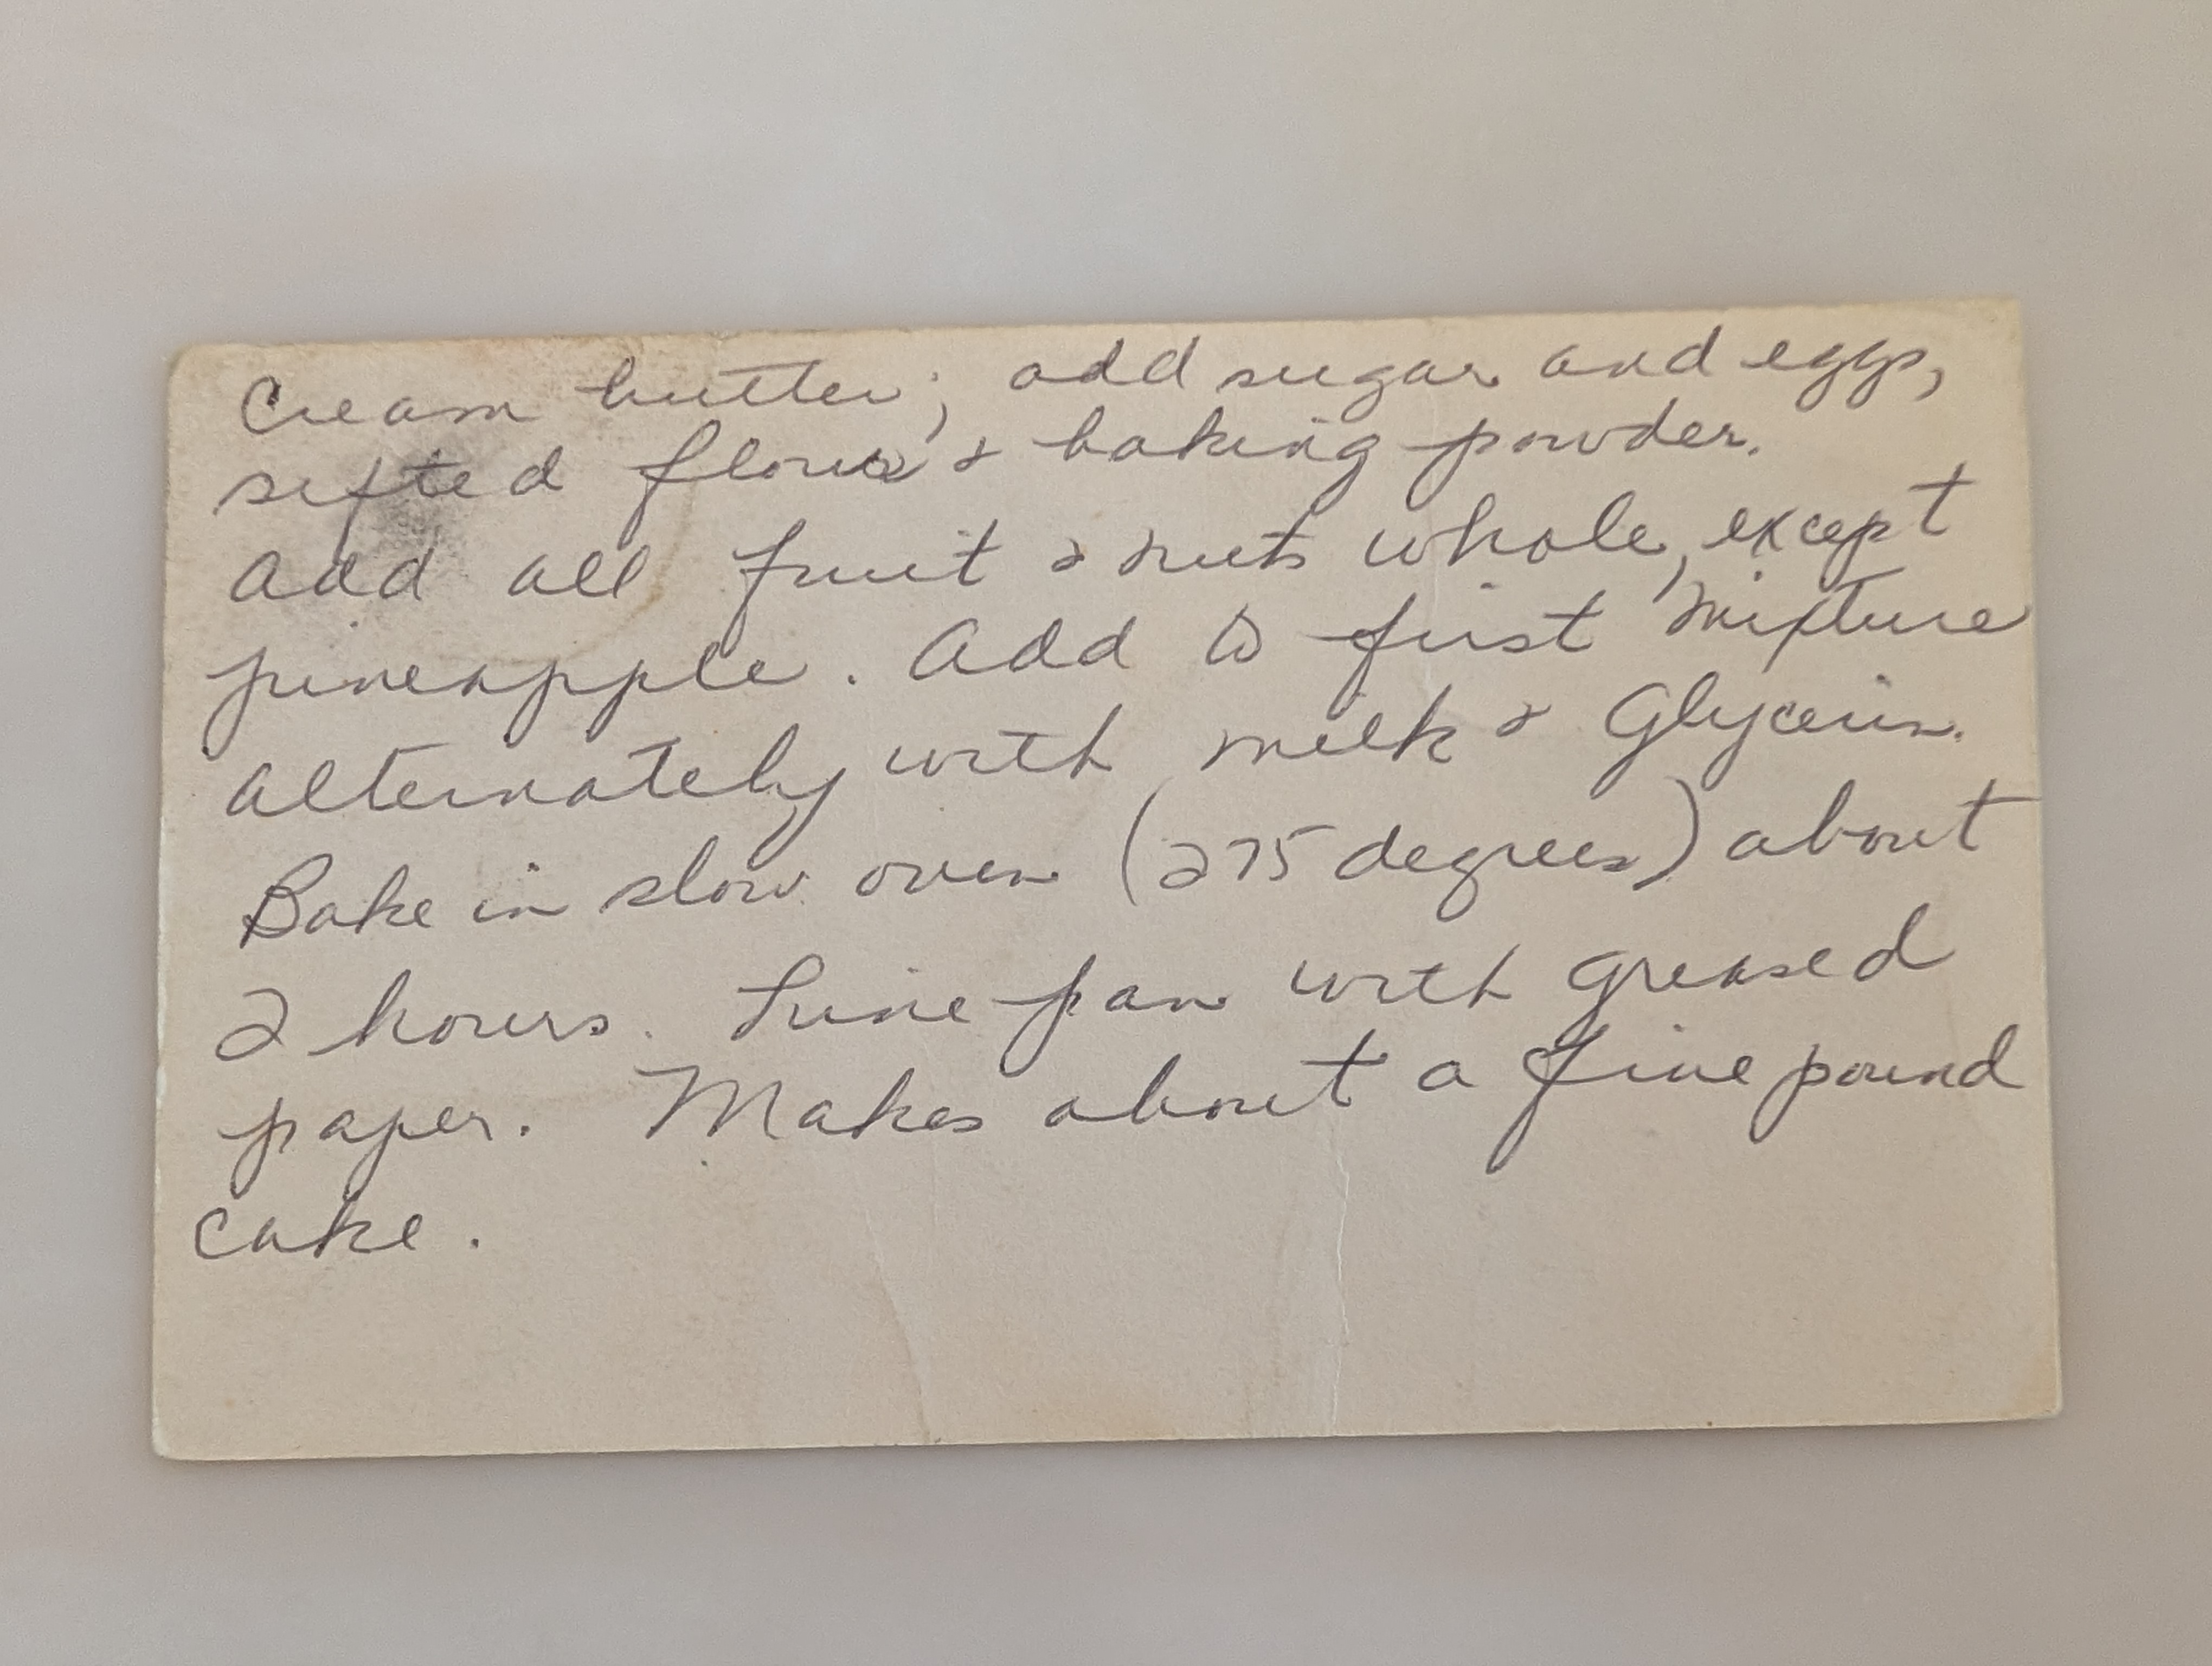 Cream butter; add sugar and eggs,
sifted flour & baking powder.
Add all fruit & nuts whole, except
pineapple. Add to first mixture
alternately with milk & Glycerin.
Bake in slow oven (275 degrees) about
2 hours. Line pan with greased
paper. Makes about a five pound
cake.